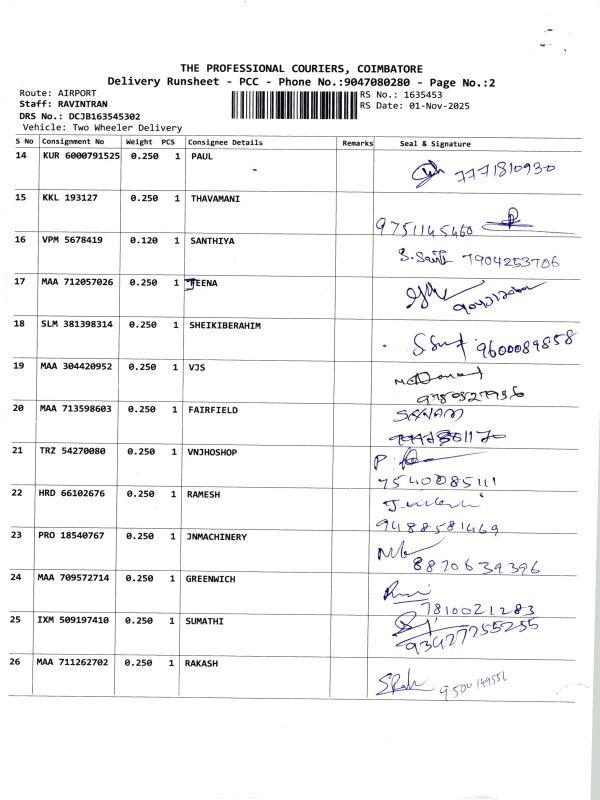 THE PROFESSIONAL COURIERS, COIMBATORE
Delivery Runsheet - PCC - Phone No.:9047080280 - Page No.:2
Route: AIRPORT
RS No.: 1635453
Staff: RAVINTRAN
RS Date: 01-Nov-2025
DRS No.: DCJB163545302
Vehicle: Two Wheeler Delivery
S No Consignment No Weight PCS Consignee Details Remarks Seal & Signature
14 KUR 6000791525 0.250 1 PAUL
7771810930
15 KKL 193127 0.250 1 THAVAMANI
9751145460
16 VPM 5678419 0.120 1 SANTHIYA
7904253706
17 MAA 712057026 0.250 1 TEENA
18 SLM 381398314 0.250 1 SHEIKIBERAHIM
9600089858
19 MAA 304420952 0.250 1 VJS
20 MAA 713598603 0.250 1 FAIRFIELD
21 TRZ 54270080 0.250 1 VNJHOSHOP
7540085111
22 HRD 66102676 0.250 1 RAMESH
9488581469
23 PRO 18540767 0.250 1 JNMACHINERY
8870639396
24 MAA 709572714 0.250 1 GREENWICH
7810021283
25 IXM 509197410 0.250 1 SUMATHI
9342775525​5
26 MAA 711262702 0.250 1 RAKASH